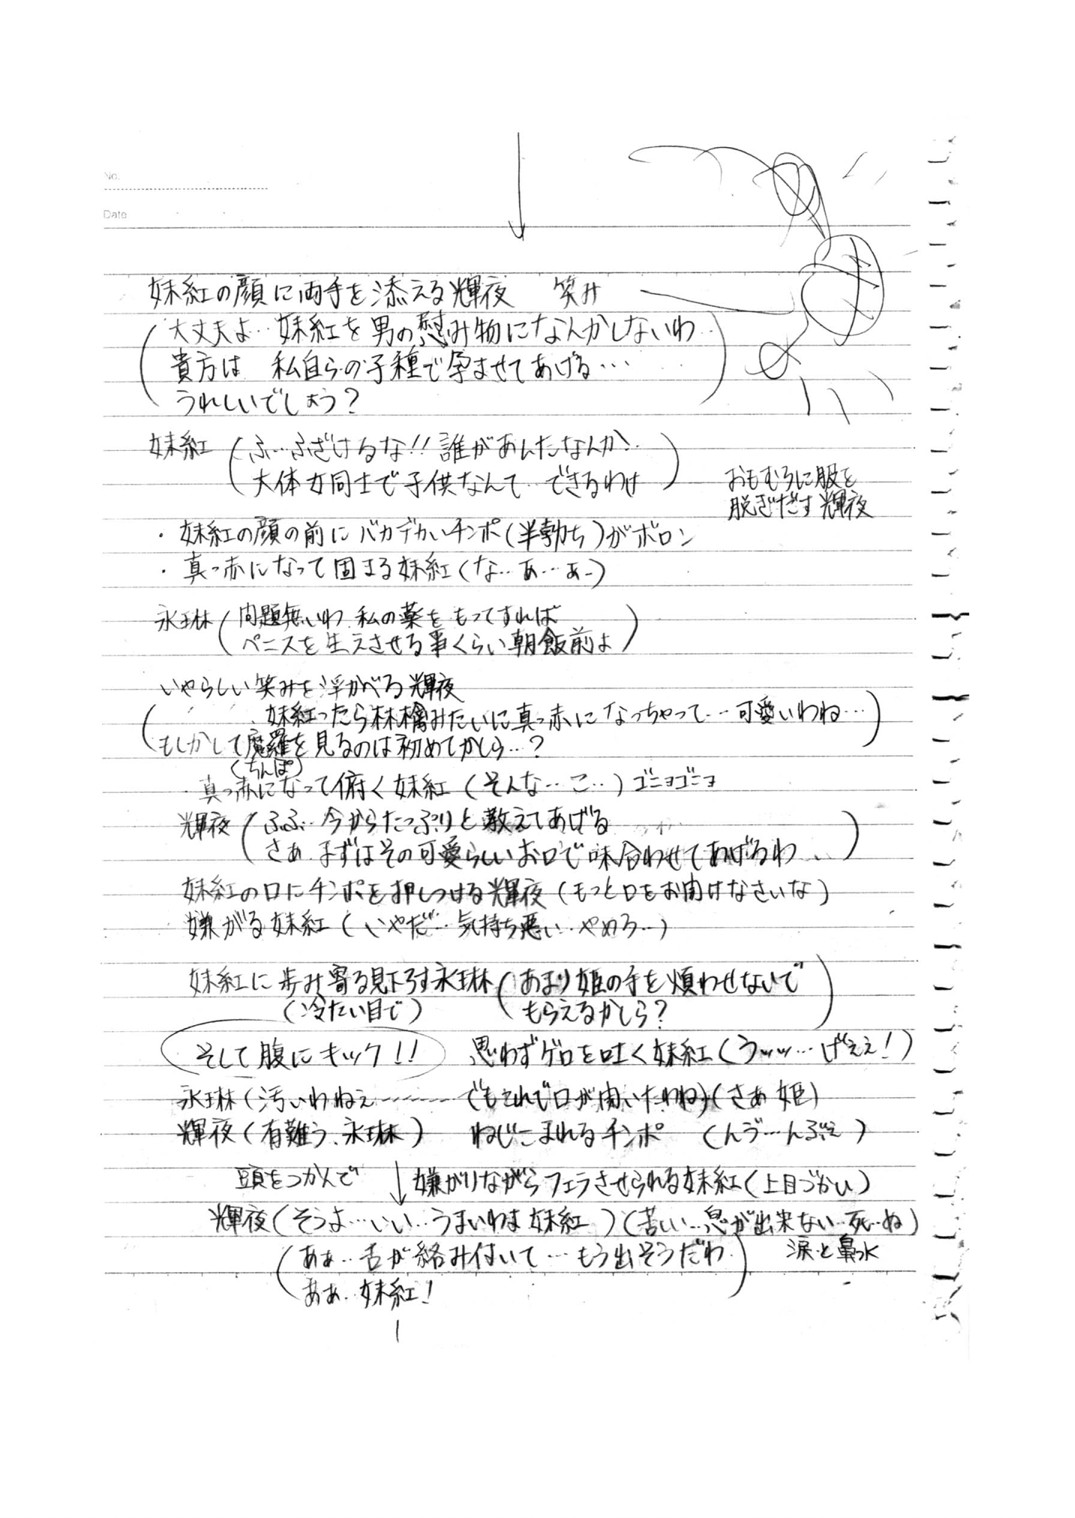 No.
Date
妹紅の顔に両手を添える輝夜 笑み
大丈夫よ‥妹紅を男の慰み物になんかしないわ‥
貴方は 私自らの子種で孕ませてあげる…
うれしいでしょう?
妹紅(ふ…ふざけるな!!誰があんたなんか!‥
大体女同士で子供なんて‥できるわけ)
おもむろに服を
脱ぎだす輝夜
・妹紅の顔の前にバカデカいチンポ(半勃ち)がボロン
・真っ赤になって固まる妹紅(な‥あ…あー)
永琳(問題無いわ 私の薬をもってすれば
ペニスを生えさせる事くらい朝飯前よ)
いやらしい笑みを浮かべる輝夜
(妹紅ったら林檎みたいに真っ赤になっちゃって…可愛いわね…
もしかして魔羅を見るのは初めてかしら…?)
(ちんぽ)
・真っ赤になって俯く妹紅(そんな…こ‥)ゴニョゴニョ
輝夜(ふふ‥今からたっぷりと教えてあげる
さあ まずはその可愛らしいお口で味合わせてあげるわ‥)
妹紅の口にチンポを押しつける輝夜(もっと口をお開けなさいな)
嫌がる妹紅(いやだ…気持ち悪い‥やめろ…)
妹紅に歩み寄る見下ろす永琳(あまり姫の手を煩わせないで
(冷たい目で) もらえるかしら?)
そして腹にキック!! 思わずゲロを吐く妹紅(うッッ…げええ!)
永琳(汚いわねえ……でもこれで口が開いたわね)(さあ 姫)
輝夜(有難う、永琳) ねじこまれるチンポ (んヴ…んぶぇ)
頭をつかんで ↓嫌がりながらフェラさせられる妹紅(上目づかい)
輝夜(そうよ…いい‥うまいわよ妹紅)(苦しい…息が出来ない‥死‥ぬ)
(あぁ‥舌が絡み付いて…もう出そうだわ 涙と鼻水
あぁ‥妹紅!)